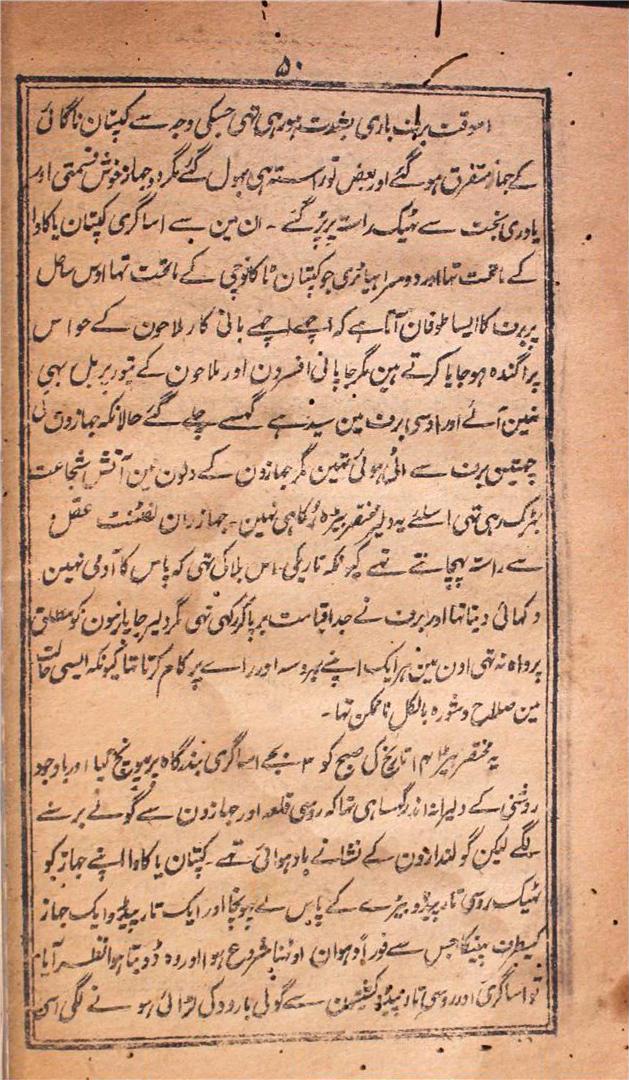 ۵۰
اسوقت برف باری بشدت ہورہی تھی جسکی وجہ سے کپتان ناگائی
کے جہاز متفرق ہوگئے اور بعض تو راستہ ہی بھول گئے مگر دو جہاز خوش قسمتی اور
یاوری بخت سے ٹہیک راستہ پر پڑگئے ۔ ان مین سے اساگری کپتان یاکاوا
کے ماتحت تھا اور دوسرا ہیاٹری جو کپتان ٹاکانوچی کے ماتحت تھا اوس ساحل
پر برف کا ایسا طوفان آتا ہے کہ اچھے اچھے بانی کار ملاحون کے حواس
پراگندہ ہوجایا کرتے ہین مگر جاپانی افسرون اور ملاحون کے تیور پر بل بھی
نہین آئے اور اوسی برف مین سیدہے گھسے چلے گئے حالانکہ جہازون کی
چھتین برف سے اٹی ہوئی تھین مگر جہازون کے دلون مین آتش شجاعت
بھڑک رہی تھی اسلئے یہ دلیر مختصر بیڑہ رکا ہی نہین ۔ جہاز ران لفٹننٹ عقل
سے راستہ پہچانتے تھے کیونکہ تاریکی اس بلا کی تھی کہ پاس کا آدمی نہین
دکھائی دیتا تھا اور برف نے جدا قیامت برپا کر رکھی تھی مگر دلیر جاپانیون کو مطلق
پرواہ نہ تھی اون مین ہر ایک اپنے بھروسہ اور راے پر کام کرتا تھا کیونکہ ایسی حالت
مین صلاح و مشورہ بالکل ناممکن تھا ۔
یہ مختصر بیڑا ۱۴ تاریخ کی صبح کو ۳ بجے اساگری بندرگاہ پر پہونچ گیا اور باوجود
روشنی کے دلیرانہ اندر گھسا ہی تھا کہ روسی قلعہ اور جہازون سے گولے برسنے
لگے لیکن گولندازون کے نشانے باد ہوائی تھے ۔ کپتان یاکاوا اپنے جہاز کو
ٹہیک روسی تارپیڈو بیڑے کے پاس لے پہونچا اور ایک تارپیڈو ایک جہاز
کیطرف پھینکا جس سے فوراً دہوان اوٹھنا شروع ہوا اور وہ ڈوبتا ہوا نظر آیا
تو اساگری اور روسی تارپیڈو کشتیون سے گولی بارود کی لڑائی ہونے لگی اس